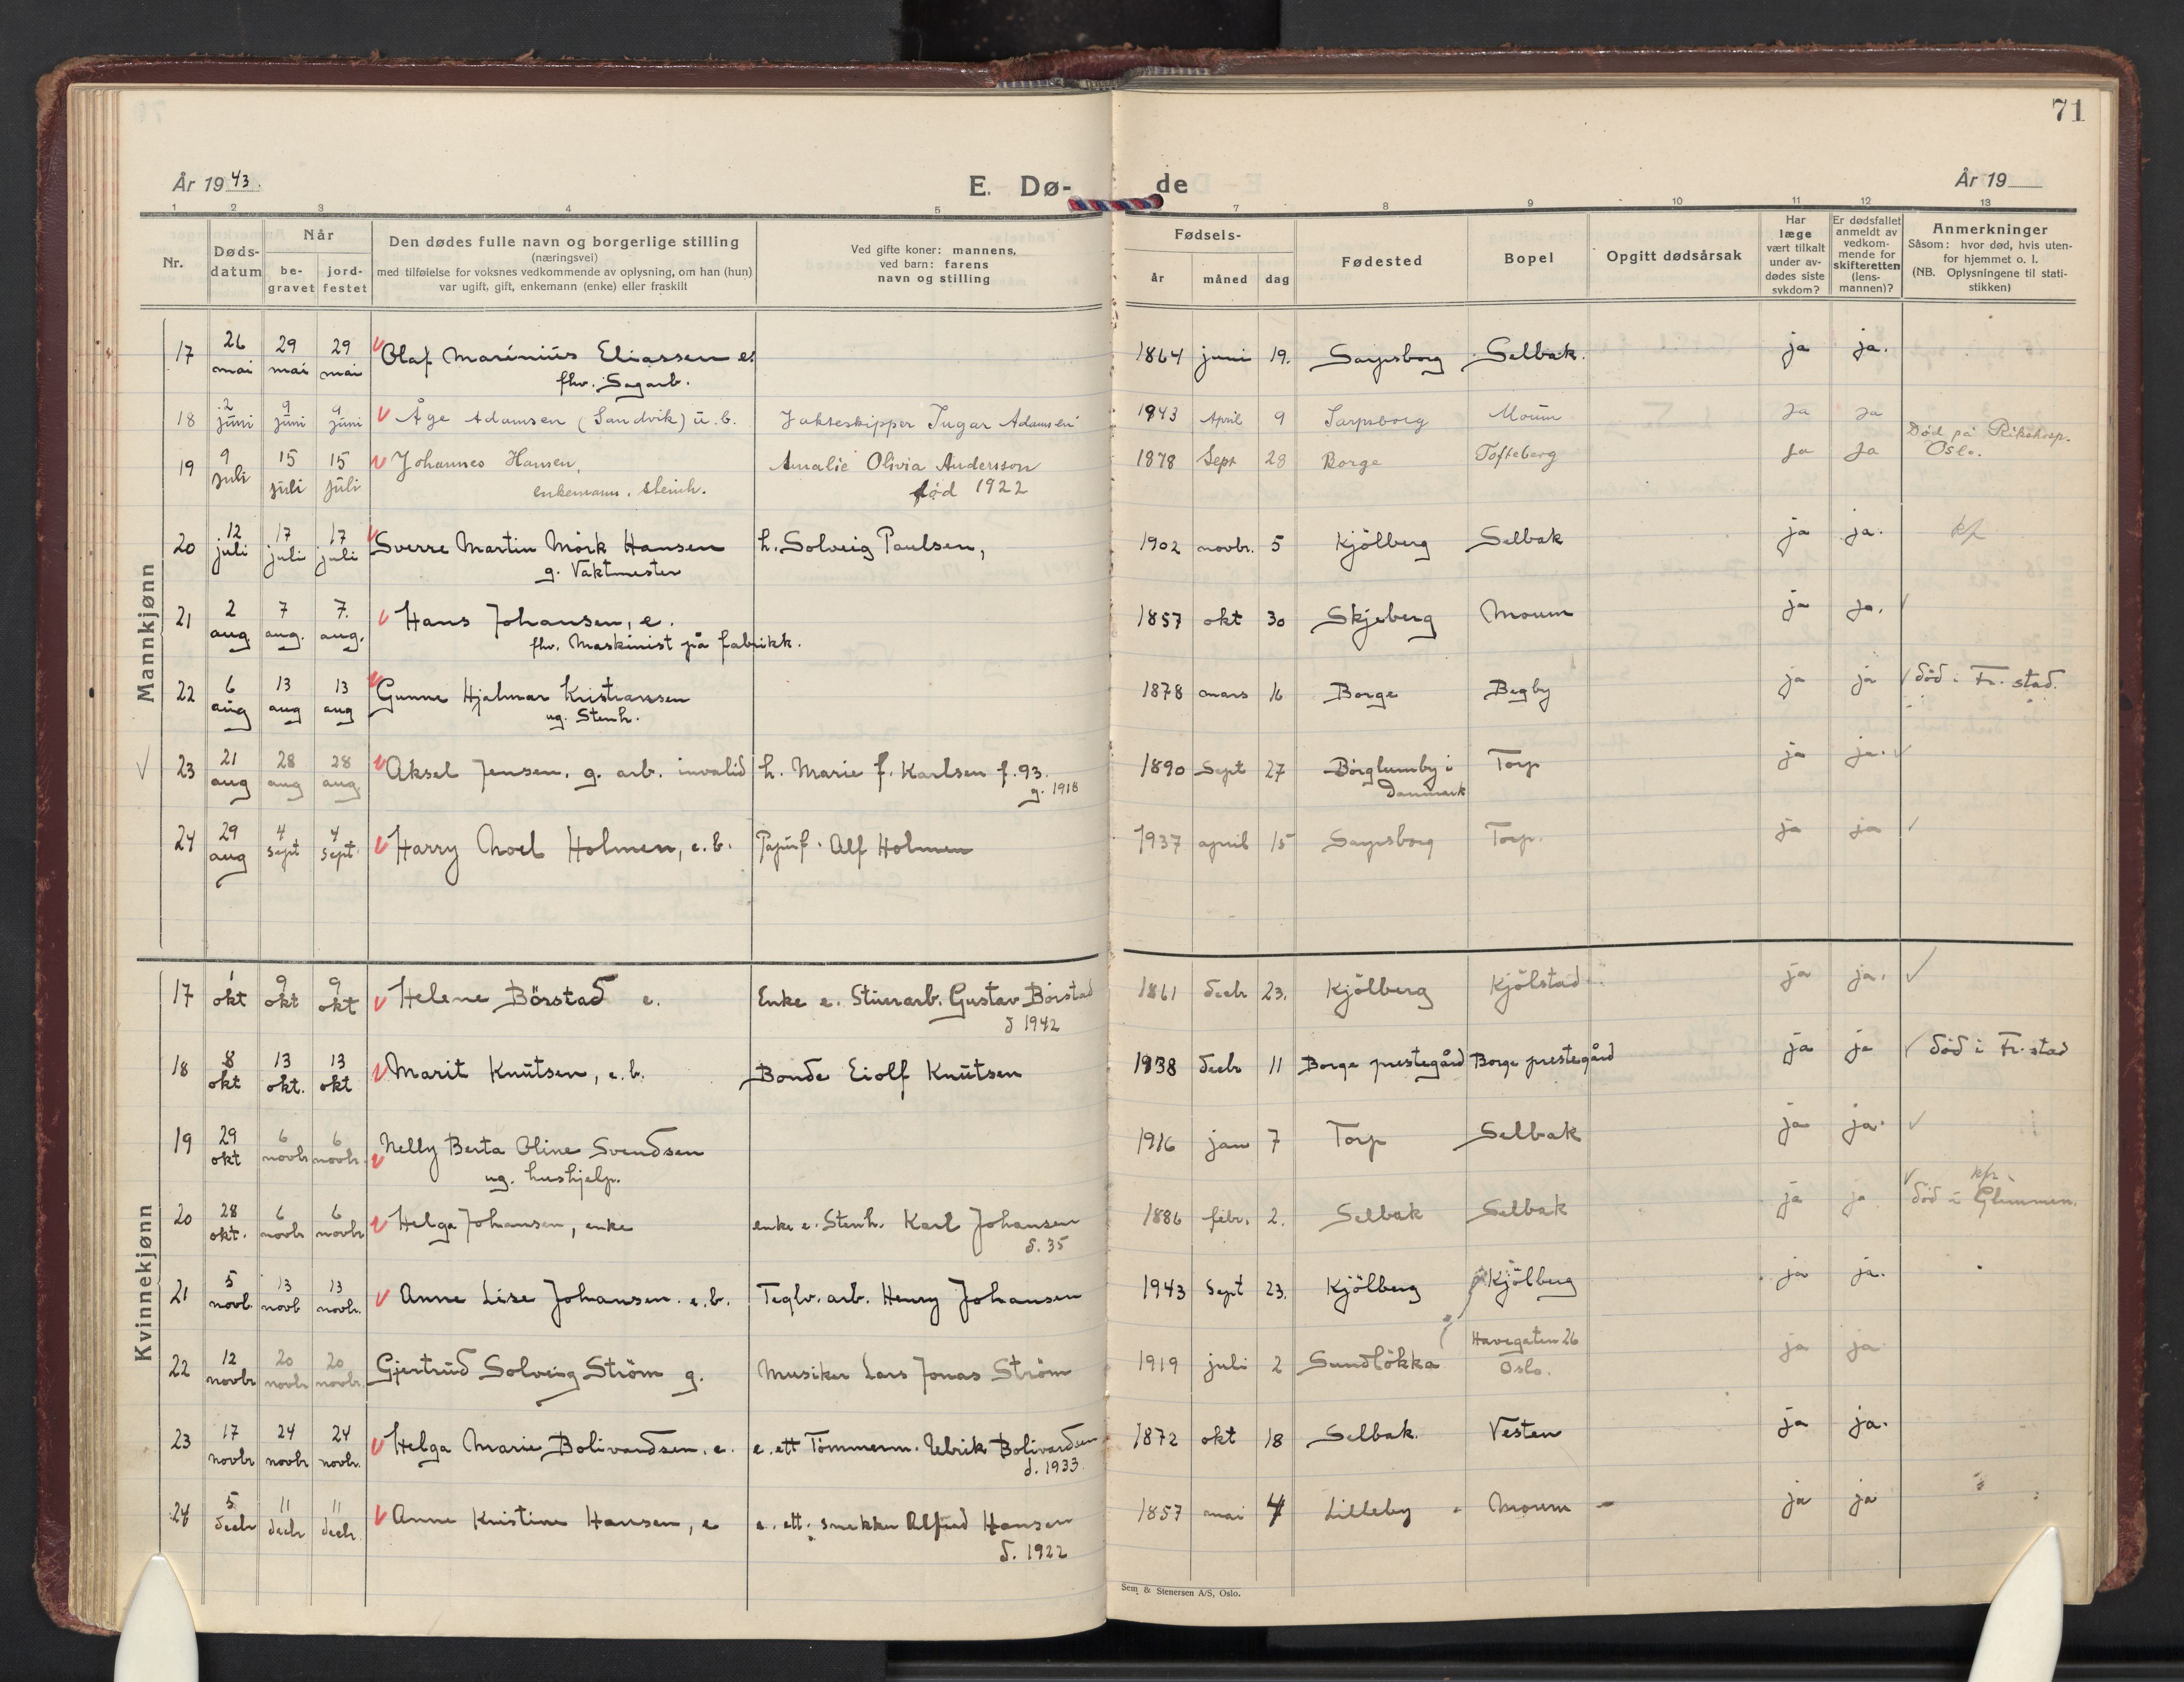 71
År 1943.
E. Dø-
de
År 19
1 2 3 4 5 7 8 9 10 11 12 13
Nr.
Døds-
datum
Når
be-
gravet
jord-
festet
Den dødes fulle navn og borgerlige stilling
(næringsvei)
med tilføielse for voksnes vedkommende av oplysning, om han (hun)
var ugift, gift, enkemann (enke) eller fraskilt
Ved gifte koner: mannens,
ved barn: farens
navn og stilling
Fødsels-
år måned dag
Fødested
Bopel
Opgitt dødsårsak
Har
læge
vært tilkalt
under av-
dødes siste
sykdom?
Er dødsfallet
anmeldt av
vedkom-
mende for
skifteretten
(lens-
mannen)?
Anmerkninger
Såsom: hvor død, hvis uten-
for hjemmet o. l.
(NB. Oplysningene til stati-
stikken)
Mannkjønn
17 26 mai 29 mai 29 mai Olaf Marinius Eliassen e. 1864 juni 19. Sarpsborg Selbak. ja ja.
fhv. Sagarb.
18 2 juni 9 juni 9 juni Åge Adamsen (Sandvik) u.b. Jakteskipper Ingar Adamsen 1943 April 9 Sarpsborg Moum Ja Ja
19 9 juli 15 juli 15 juli Johannes Hansen, Amalie Olivia Andersson 1878 Sept 28 Borge Tofteberg Ja Ja Død på Rikshosp.
Oslo.
enkemann. steinh. død 1922
20 12 juli 17 juli 17 juli Sverre Martin Mörk Hansen h. Solveig Paulsen, 1902 novbr. 5 Kjölberg Selbak ja ja. kf
g. Vaktmester
21 2 aug. 7 aug. 7. aug. Hans Johansen, e. 1857 okt 30 Skjeberg Moum ja ja.
fhv. Maskinist på fabrikk.
22 6 aug 13 aug 13 aug Gunne Hjalmar Kristianssen 1878 mars 16 Borge Begby ja ja död i Fr.stad.
ug. Stenh.
23 21 aug 28 aug 28 aug. Aksel Jensen. g. arb. invalid h. Marie f. Karlsen f. 93. 1890 Sept 27 Börglumby i Torp ja ja.
g. 1918 Danmark
24 29 aug 4 sept 4 sept. Harry Noel Holmen, e.b. Papirf. Alf Holmen 1937 april 15 Sarpsborg Torp. ja ja
Kvinnekjønn
17 1 okt 9 okt 9 okt Helene Börstad e. Enke e. Stuerarb. Gustav Börstad 1861 decbr 23. Kjölberg Kjölstad ja ja.
d 1942
18 8 okt 13 okt. 13 okt Marit Knutsen, e.b. Bonde Eiolf Knutsen 1938 decbr 11 Borge prestegård Borge prestegård ja ja död i Fr.stad
19 29 okt 6 novbr 6 novbr. Nelly Berta Oline Svendsen 1916 jan 7 Torp Selbak ja ja.
ug. hushjelp.
20 28 okt. 6 novbr 6 novbr Helga Johansen, enke enke e. Stenh. Karl Johansen 1886 febr. 2. Selbak Selbak ja ja kfr.
död i Glemmen.
d. 35
21 5 novb. 13 novb 13 novbr. Anne Lise Johansen. e.b. Teglv. arb. Henry Johansen 1943 Sept 23. Kjölberg Kjölberg ja ja.
22 12 novbr 20 novbr 20 novbr. Gjertrud Solveig Ström g. Musiker Lars Jonas Ström 1919 juli 2 Sundlökka Havegaten 26 ja ja
Oslo.
23 17 novbr 24 novbr 24 novbr. Helga Marie Bolivardsen. e. e. ett Tömmerm. Ulrik Bolivardsen 1872 okt 18 Selbak. Vesten ja ja.
d. 1933.
24 5 decbr 11 decbr 11 decbr. Anne Kristine Hansen, e e. ett. snekker Alfred Hansen 1857 mai 4 Lilleby Moum ja ja
d. 1922
Sem & Stenersen A/S, Oslo.